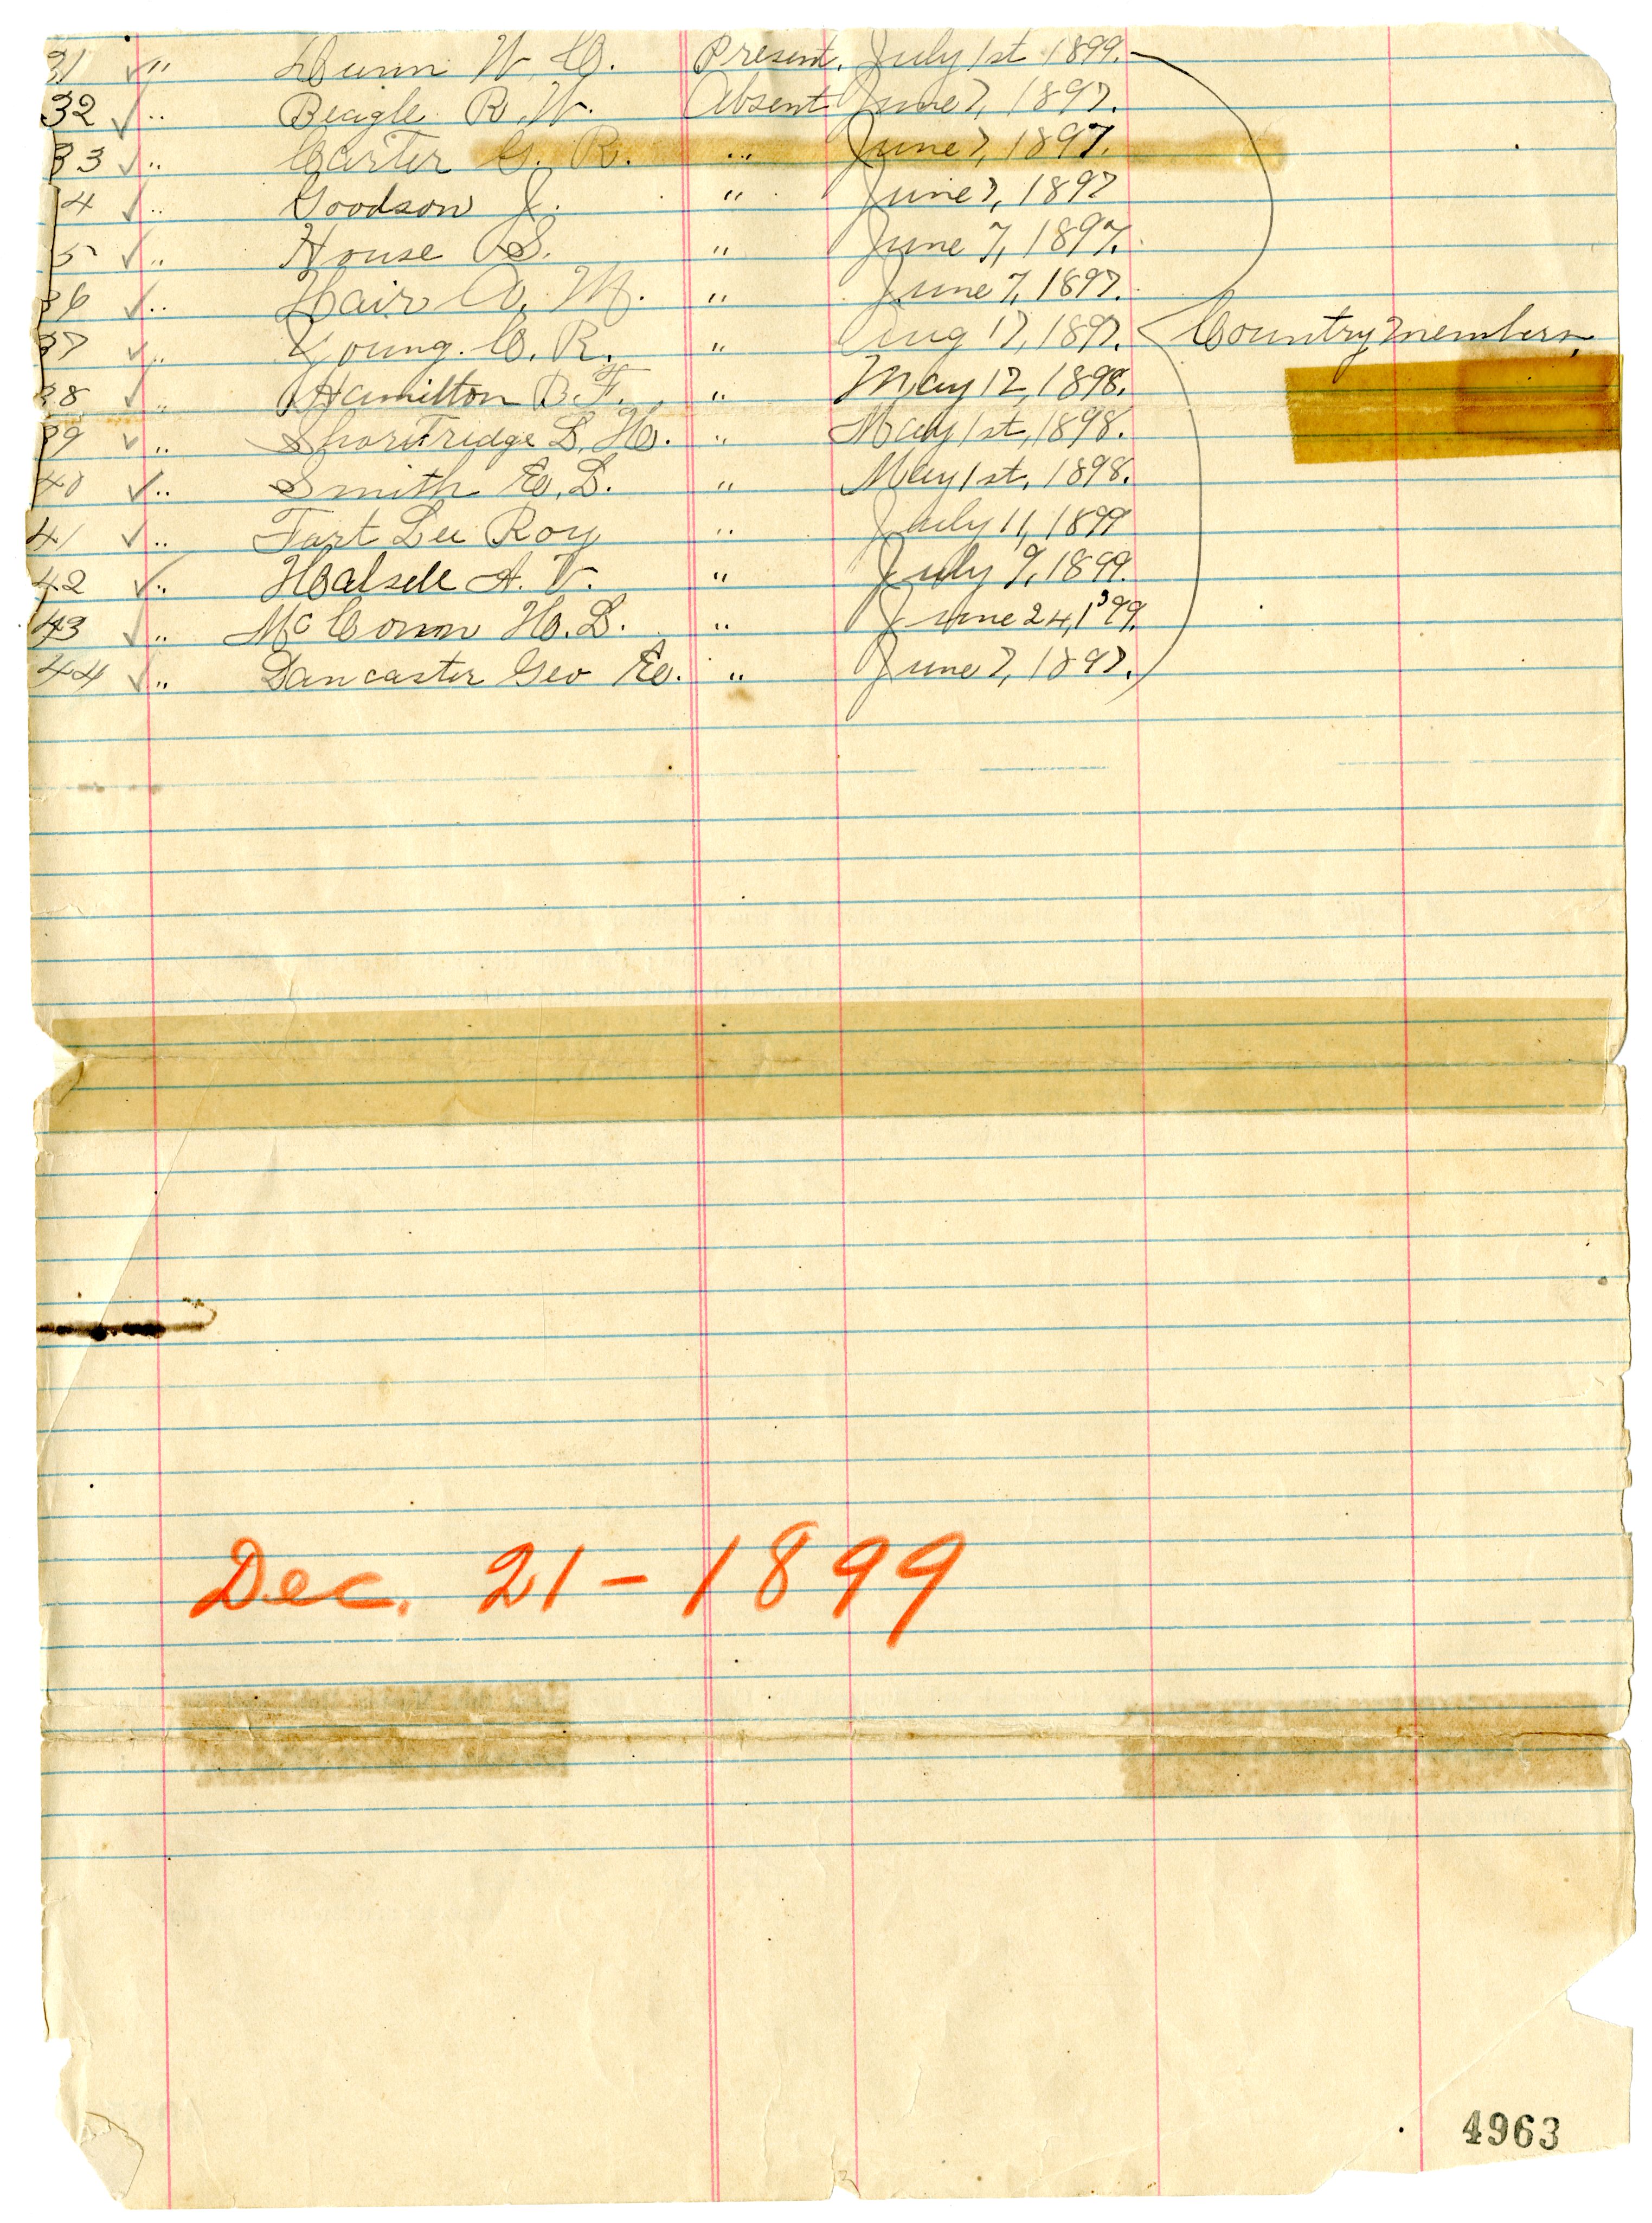 31 ✓ " Dunn W. C. Present. July 1st 1899.
32 ✓ " Beagle R. W. Absent June 7, 1897.
33 ✓ " Carter G. R. " June 7, 1897.
4 ✓ " Goodson J. " June 7, 1897
5 ✓ " House S. " June 7, 1897.
36 ✓ " Hair A. M. " June 7, 1897.
37 ✓ " Young. C. R. " Aug 17, 1897. Country members,
38 ✓ " Hamilton B. F. " May 12, 1898.
39 ✓ " Shortridge L. H. " May 1st, 1898.
40 ✓ " Smith E. L. " May 1st, 1898.
41 ✓ " Tart Lee Roy " July 11, 1899
42 ✓ " Halsell A. V. " July 9, 1899.
43 ✓ " McConn H. L. " June 24, 1'99.
44 ✓ " Lancaster Geo E. " June 7, 1897.
Dec. 21 - 1899
4963